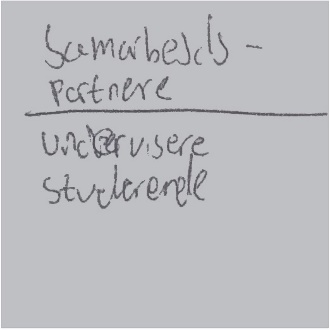 Samarbejds-
partnere
undervisere
studerende